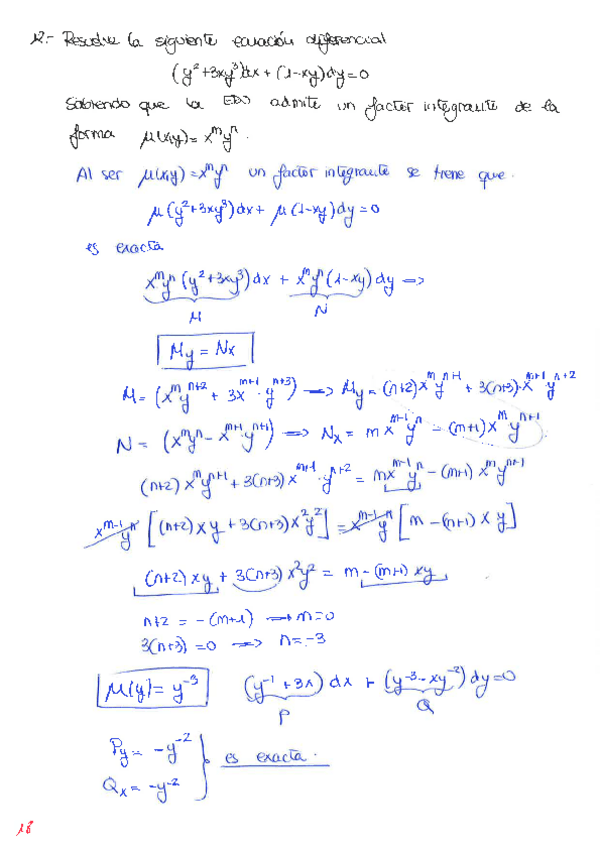 12.- Resuelve la siguiente ecuación diferencial
(y²+3xy³)dx + (1-xy)dy=0
Sabiendo que la EDO admite un factor integrante de la
forma μ(x,y)= xᵐyⁿ.
Al ser μ(x,y)=xᵐyⁿ un factor integrante se tiene que.
μ(y²+3xy³)dx + μ(1-xy)dy=0
es exacta
xᵐyⁿ(y²+3xy³)dx + xᵐyⁿ(1-xy)dy ⟹
M N
My = Nx
M = (xᵐyⁿ⁺² + 3xᵐ⁺¹·yⁿ⁺³) ⟹ My = (n+2)xᵐyⁿ⁺¹ + 3(n+3)·xᵐ⁺¹yⁿ⁺²
N = (xᵐyⁿ - xᵐ⁺¹yⁿ⁺¹) ⟹ Nx = m xᵐ⁻¹yⁿ - (m+1)xᵐyⁿ⁺¹
(n+2)xᵐyⁿ⁺¹ + 3(n+3)xᵐ⁺¹·yⁿ⁺² = mxᵐ⁻¹yⁿ - (m+1)xᵐyⁿ⁺¹
xᵐ⁻¹yⁿ[(n+2)xy + 3(n+3)x²y²] = xᵐ⁻¹yⁿ[m - (m+1)xy]
(n+2)xy + 3(n+3)x²y² = m - (m+1)xy
n+2 = -(m+1) ⟶ m=0
3(n+3) = 0 ⟶ n=-3
μ(y)= y⁻³ (y⁻¹+3x)dx + (y⁻³-xy⁻²)dy=0
P Q
Py = -y⁻²
Qx = -y⁻² } es exacta.
18